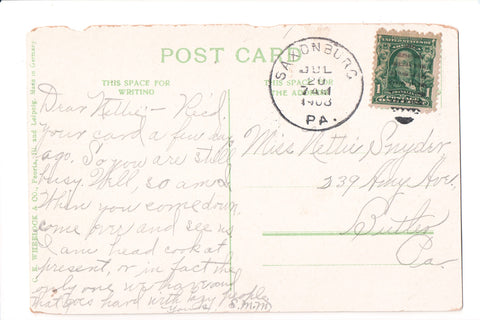 POST CARD
THIS SPACE FOR
WRITING
THIS SPACE FOR
THE ADDRESS
SAXONBURG
JUL
20
7 AM
1908
PA.
Dear Nettie:- Rec'd
your card a few days
ago. So you are still
busy. Well, so am I.
When you come down,
come over and see us
I am head cook at
present, or in fact the
only one
that goes hard with
Yours S.M.M.
Miss Nettie Snyder
339 Ave.,
Butler
Pa.
C. E. WHEELOCK & CO., Peoria, Ill. and Leipzig. Made in Germany